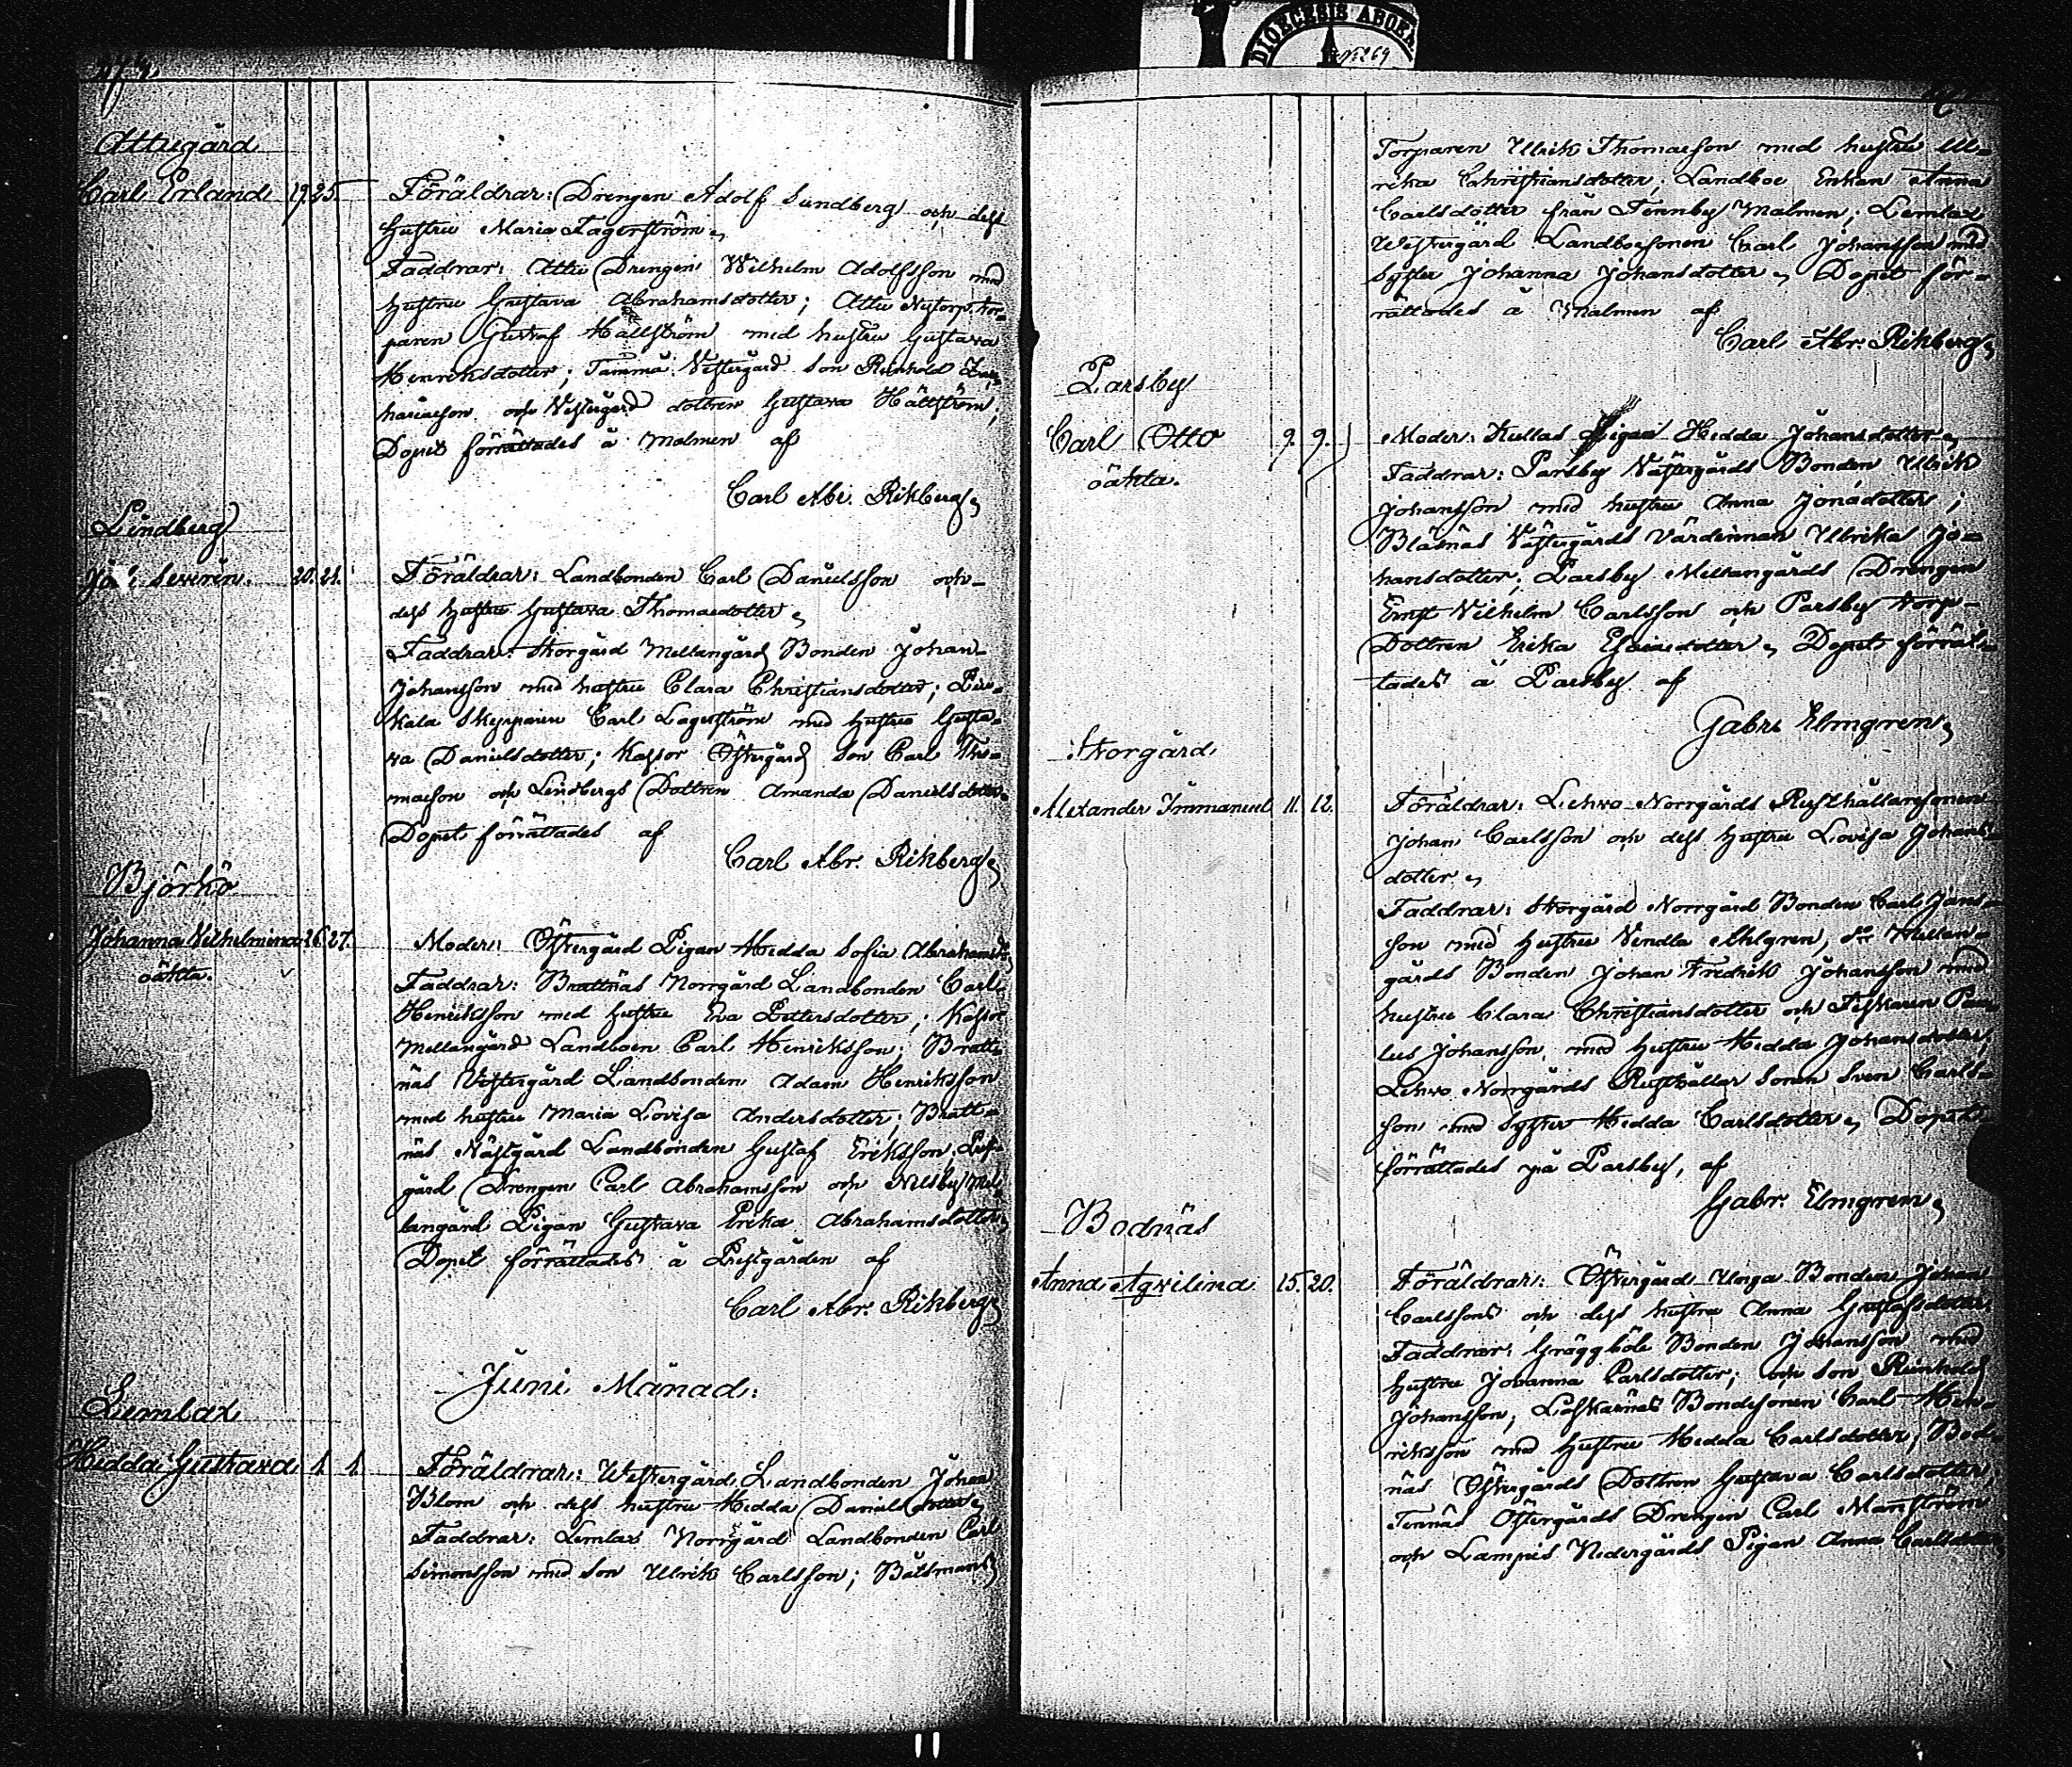 DIOECESIS ABOEN
Attugård
Carl Erland 19. 25. Föräldrar: Drengen Adolf Sundberg och dess
hustru Maria Fagerström,
Faddrar: Attu Drengen Wilhelm Adolfsson med
hustru Gustava Abrahamsdotter; Attu Nytorp tor-
paren Gustaf Hällström med hustru Gustava
Henriksdotter; Tammå Vestergård son Reinhold Zac-
hariæson och Vestergård dottren Gustava Hällström,
Dopet förrättades å Malmen af
Carl Abr. Rikberg,
Lindberg
Severin. 20. 21. Föräldrar: Landbonden Carl Danielsson och
dess hustru Gustava Thomasdotter,
Faddrar: Storgård Mellangård Bonden Johan
Johansson med hustru Clara Christiansdotter; Pir-
kala Skepparen Carl Lagerström med hustru Gusta-
va Danielsdotter; Kassor Östergård son Carl Tho-
masson och Lindbergs Dottren Amanda Danielsdotter
Dopet förrättades af
Carl Abr. Rikberg,
Björkö
Johanna Vilhelmina 26. 27. Moder: Östergård Pigan Hedda Sofia Abrahamsdr,
oäkta.
Faddrar: Brattnäs Norrgård Landbonden Carl
Henriksson med hustru Eva Pettersdotter; Kassor
Mellangård Landboen Carl Henriksson; Bratt-
näs Vestergård Landbonden Adam Henriksson
med hustru Maria Lovisa Andersdotter; Bratt-
näs Nästgård Landbonden Gustaf Eriksson,
gård Drengen Carl Abrahamsson och Nilsby Mel-
langård Pigan Gustava Erika Abrahamsdotter,
Dopet förrättades å Prestgården af
Carl Abr. Rikberg,
Juni Månad:
Lemlax
Hedda Gustava 1. 1. Föräldrar: Westergård Landbonden Johan
Blom och dess hustru Hedda Danielsdotter,
Faddrar: Lemlax Norrgård Landbonden Carl
Simonsson med son Ulrik Carlsson; Båtsmans
Torparen Ulrik Thomasson med hustru Ul-
rika Christiansdotter; Landboe Enkan Anna
Carlsdotter från Tennby Malmen; Lemlax
Westergård Landboesonen Carl Johansson med
syster Johanna Johansdotter, Dopet för-
rättades å Malmen af
Carl Abr. Rikberg,
Parsby
Carl Otto 9. 9. Moder: Kullas Pigan Hedda Johansdotter,
oäkta.
Faddrar: Parsby Västergårds Bonden Ulrik
Johansson med hustru Anna Jonædotter;
Bläsnäs Västergårds Värdinnan Ulrika Jo-
hansdotter; Parsby Mellangårds Drengen
Ernst Vilhelm Carlsson och Parsby torp-
Dottren Erika Esaiædotter, Dopet förrät-
tades å Parsby af
Gabr. Elmgren,
Storgård
Alexander Immanuel 11. 12. Föräldrar: Lehvo Norrgårds Rusthållaresonen
Johan Carlsson och dess hustru Lovisa Johans-
dotter,
Faddrar: Storgård Norrgård Bonden Carl Jans-
son med hustru Vendla Ahlgren, d:o Mellan-
gårds Bonden Johan Fredrik Johansson med
hustru Clara Christiansdotter och Fiskaren Pau-
lus Johansson med hustru Hedda Johansdotter,
Lehvo Norrgårds Rusthållar sonen Sven Carls-
son med syster Hedda Carlsdotter, Dopet
förrättades på Parsby, af
Gabr. Elmgren,
Bodnäs
Anna Aqvilina 15. 20. Föräldrar: Östergård Unga Bonden Johan
Carlsson och dess hustru Anna Gustafsdotter,
Faddrar: Gräggböle Bonden Johansson med
hustru Johanna Carlsdotter; och son Reinhold
Johansson, Löfskärnäs Bondesonen Carl Hen-
riksson med hustru Hedda Carlsdotter; Bod-
näs Östergårds Dottren Gustava Carlsdotter,
Tennäs Östergårds Drengen Carl Malmström
och Lampis Nedergårds Pigan Anna Carlsdotter